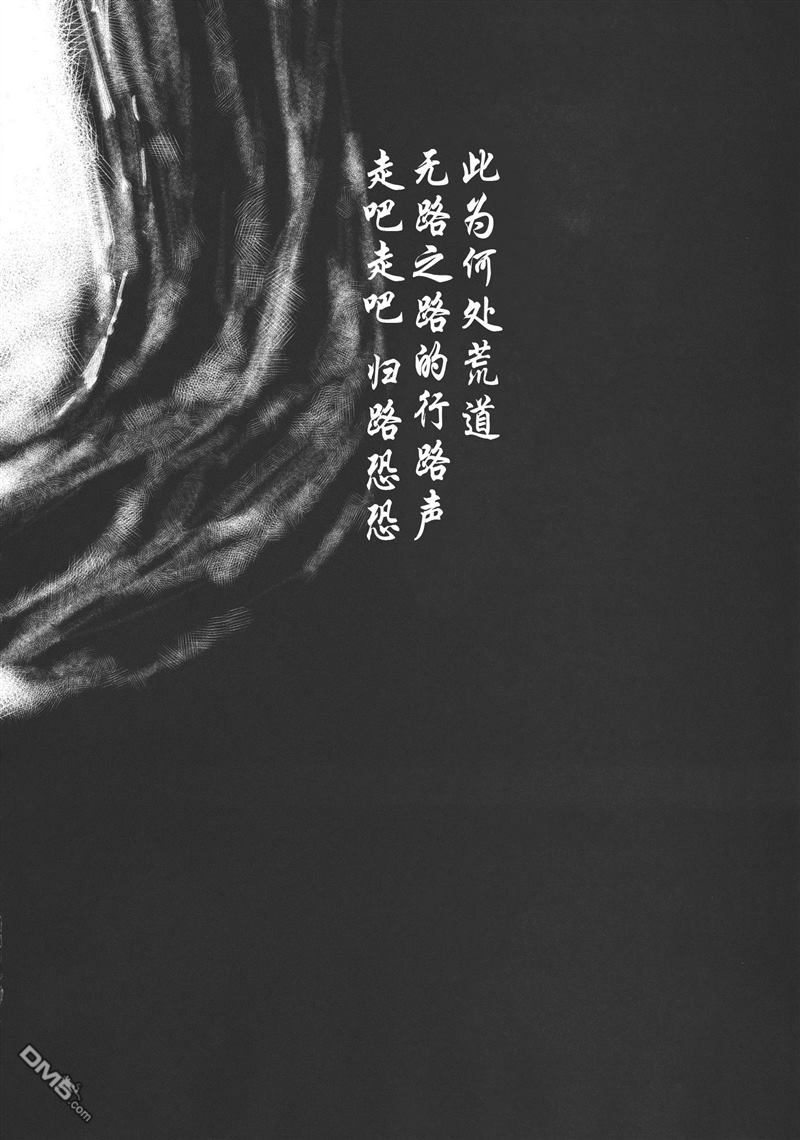 此为何处荒道
无路之路的行路声
走吧走吧 归路恐恐
DM5.com